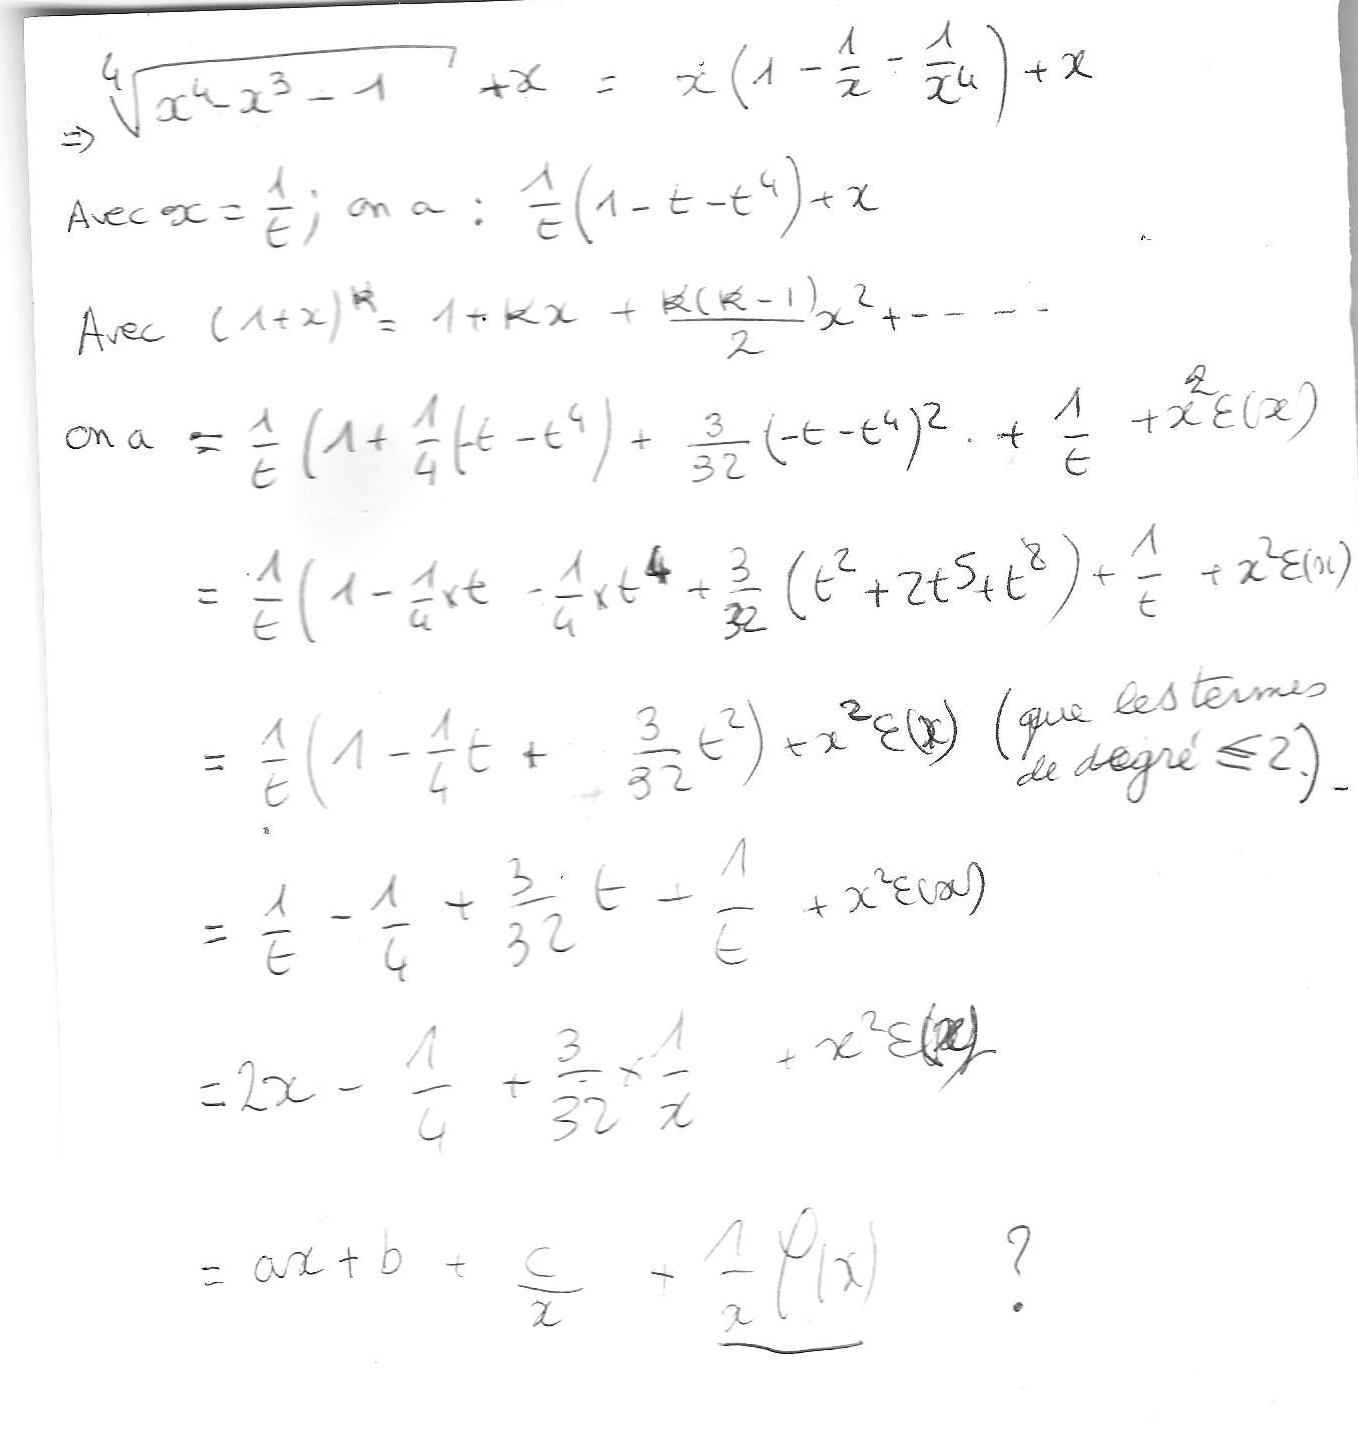 ⇒ ⁴√(x⁴-x³-1) +x = x(1 - 1/x - 1/x⁴) + x
Avec x = 1/t ; on a : 1/t (1 - t - t⁴) + x
Avec (1+x)^k = 1 + kx + k(k-1)/2 x² + - - - -
on a = 1/t (1 + 1/4 (-t - t⁴) + 3/32 (-t - t⁴)² . + 1/t + x²ε(x)
= 1/t (1 - 1/4 × t - 1/4 × t⁴ + 3/32 (t² + 2t⁵ + t⁸) + 1/t + x²ε(x)
= 1/t (1 - 1/4 t + 3/32 t²) + x²ε(x) (que les termes de degré ≤ 2.)
= 1/t - 1/4 + 3/32 t + 1/t + x²ε(x)
= 2x - 1/4 + 3/32 × 1/x + x²ε(x)
= ax + b + c/x + 1/x φ(x) ?